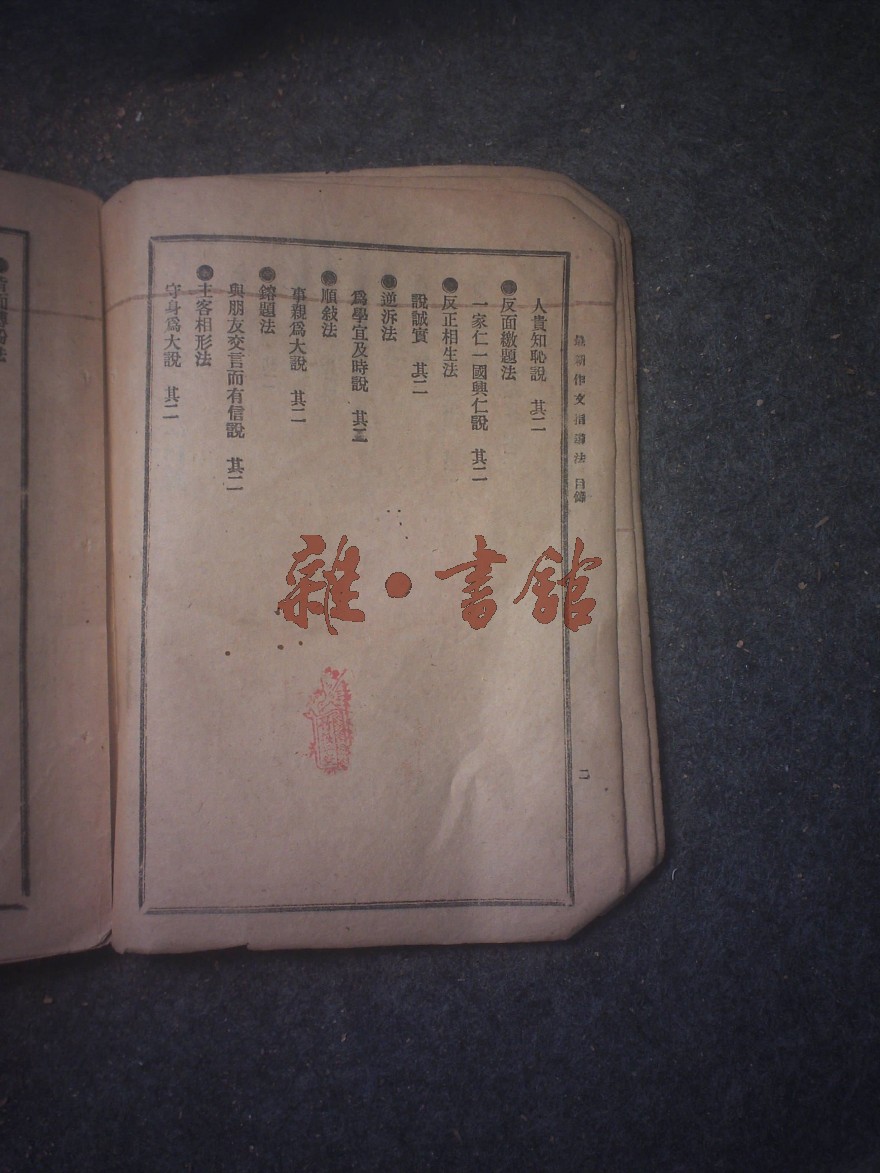 最新作文指導法 目錄
二
人貴知恥說 其二
●反面繳題法
一家仁一國興仁說 其二
●反正相生法
說誠實 其二
●逆泝法
爲學宜及時說 其三
●順敍法
事親爲大說 其二
●鎔題法
與朋友交言而有信說 其二
●主客相形法
守身爲大說 其二
雜·書館